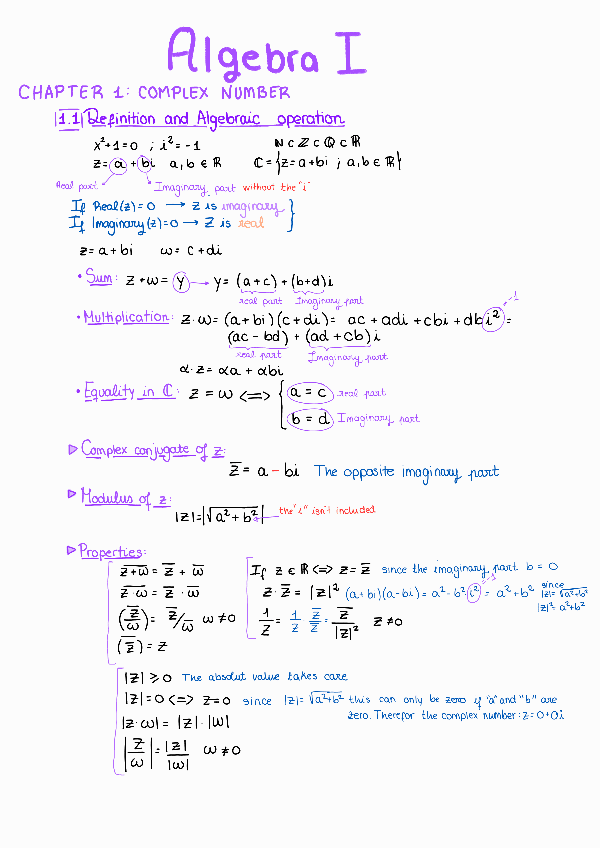 Algebra I
CHAPTER 1: COMPLEX NUMBER
1.1 Definition and Algebraic operation
x²+1=0 ; i²=-1
ℕ⊂ℤ⊂ℚ⊂ℝ
z=a+bi a,b∈ℝ
ℂ={z=a+bi ; a,b∈ℝ}
Real part
Imaginary part without the "i"
If Real(z)=0 → Z is imaginary
If Imaginary(z)=0 → Z is real
z=a+bi ω=c+di
• Sum: z+ω=y → y=(a+c)+(b+d)i
real part Imaginary part
• Multiplication: z·ω=(a+bi)(c+di)= ac+adi+cbi+dbi²=
-1
(ac-bd)+(ad+cb)i
real part Imaginary part
α·z=αa+αbi
• Equality in ℂ: z=ω <=> {
a=c real part
b=d Imaginary part
▷ Complex conjugate of z:
z̄=a-bi The opposite imaginary part
▷ Modulus of z:
|z|=|√a²+b²| the "i" isn't included
▷ Properties:
z̅+̅ω̅ = z̅ + ω̅
z̅·̅ω̅ = z̅ · ω̅
(z̅/ω̅) = z̅/ω̅ ω≠0
(z̅) = z
If z∈ℝ <=> z=z̅ since the imaginary part b=0
z·z̅=|z|² (a+bi)(a-bi)=a²-b²i²=a²+b² since |z|=√a²+b²
-1
|z|²=a²+b²
1/z = 1/z z̅/z̅ = z̅/|z|² z≠0
|z|⩾0 The absolut value takes care
|z|=0 <=> z=0 since |z|=√a²+b² this can only be zero if "a" and "b" are
zero. Therefor the complex number: z=0+0i
|z·ω|=|z|·|ω|
|z/ω|=|z|/|ω| ω≠0